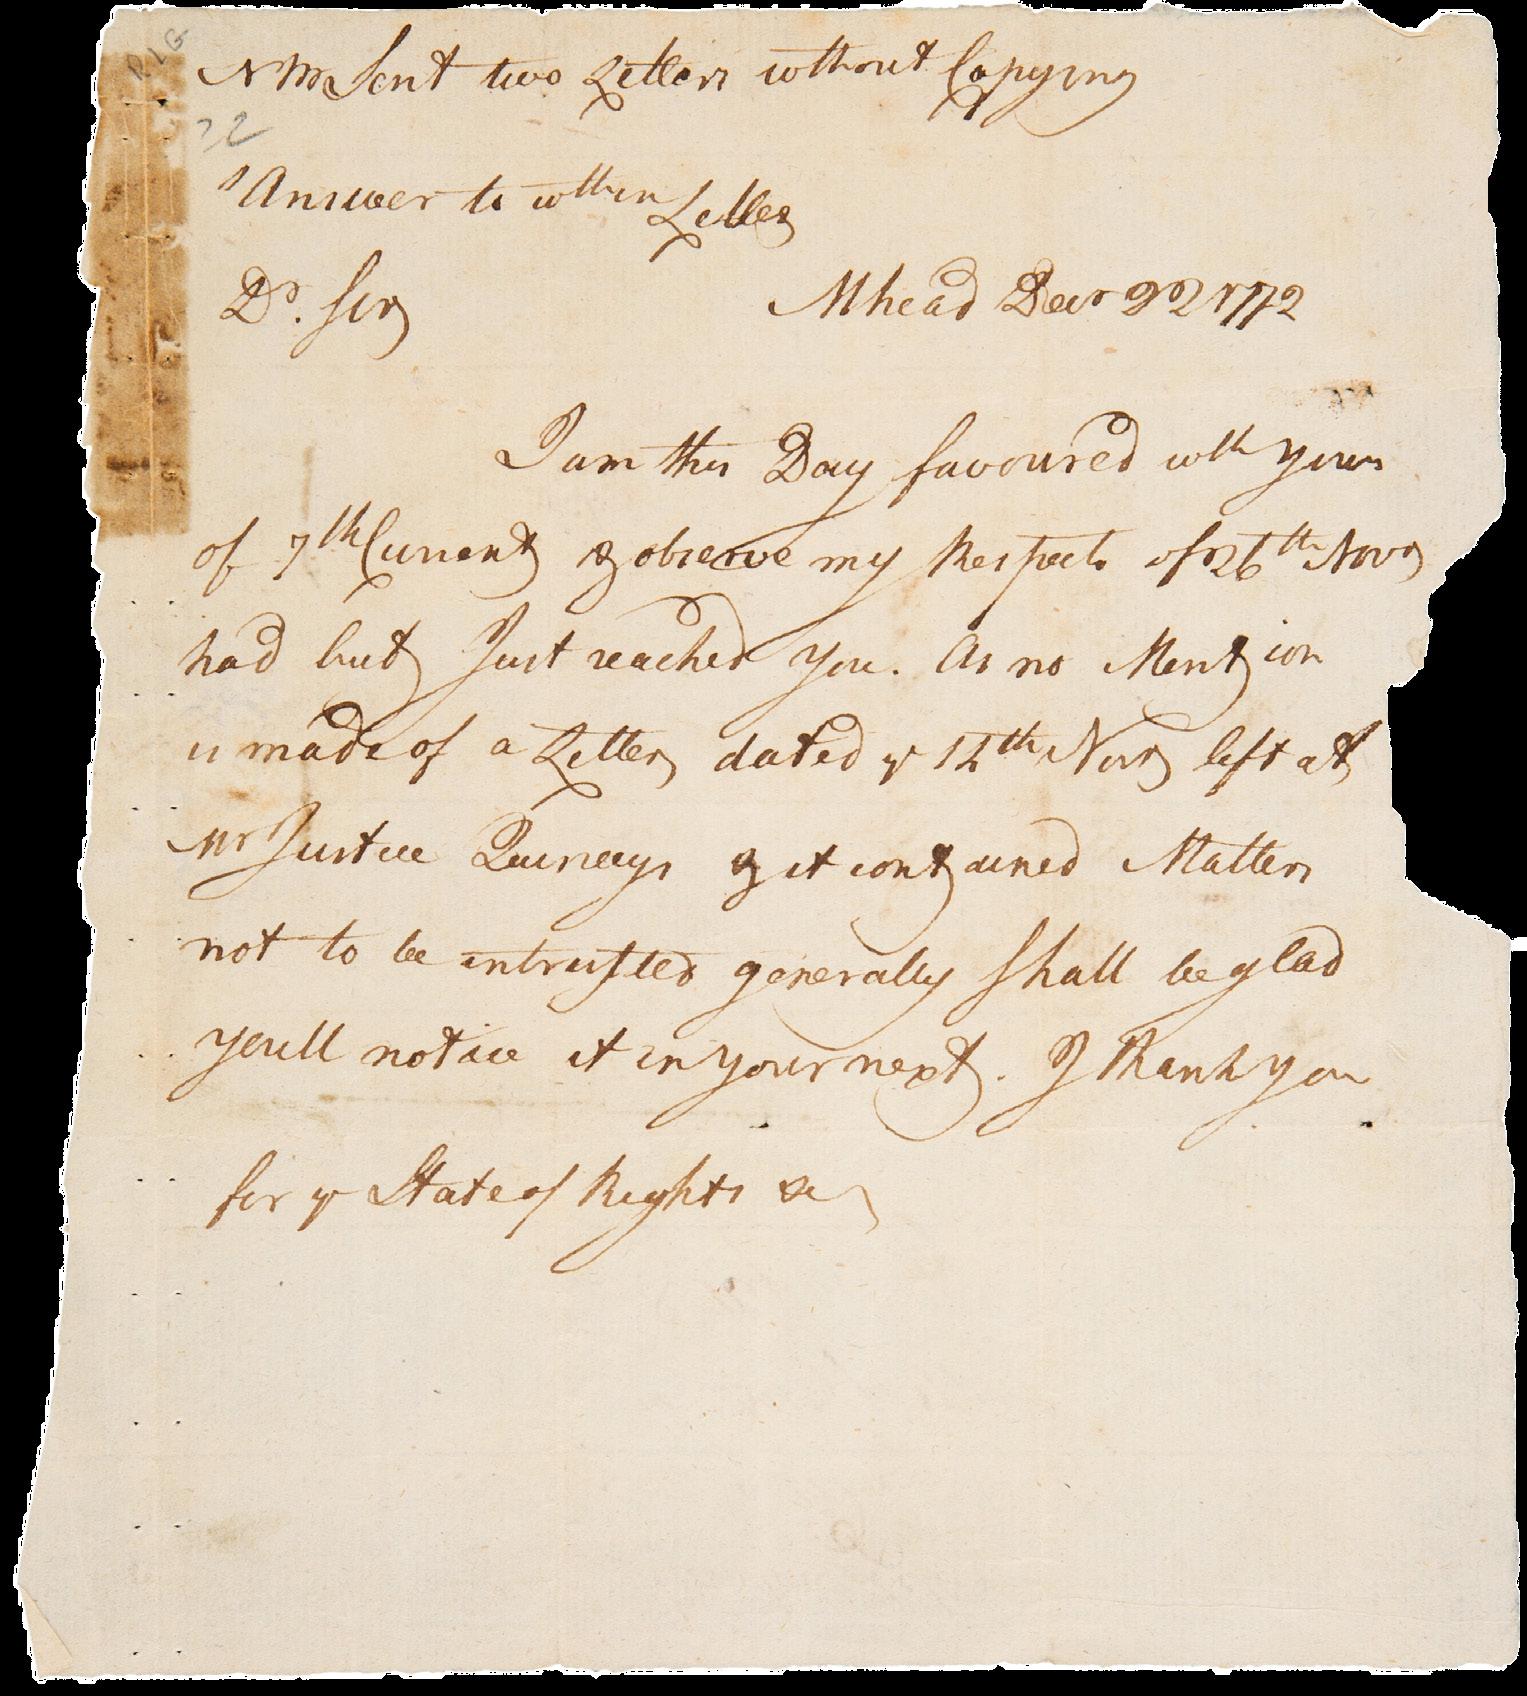 NB Sent two Letters without Copying
Answer to wthin Letter
Dr. Sir
Mhead Decr 22 1772
I am this Day favoured wth yours
of 7th Current & observe my Respects of 26th Novr
had but Just reached you. As no Mention
is made of a Letter dated ye 12th Novr left at
Mr Justice Quinceys & it contained Matters
not to be intrusted generally shall be glad
youll notice it in your next. I thank you
for ye State of Rights &c